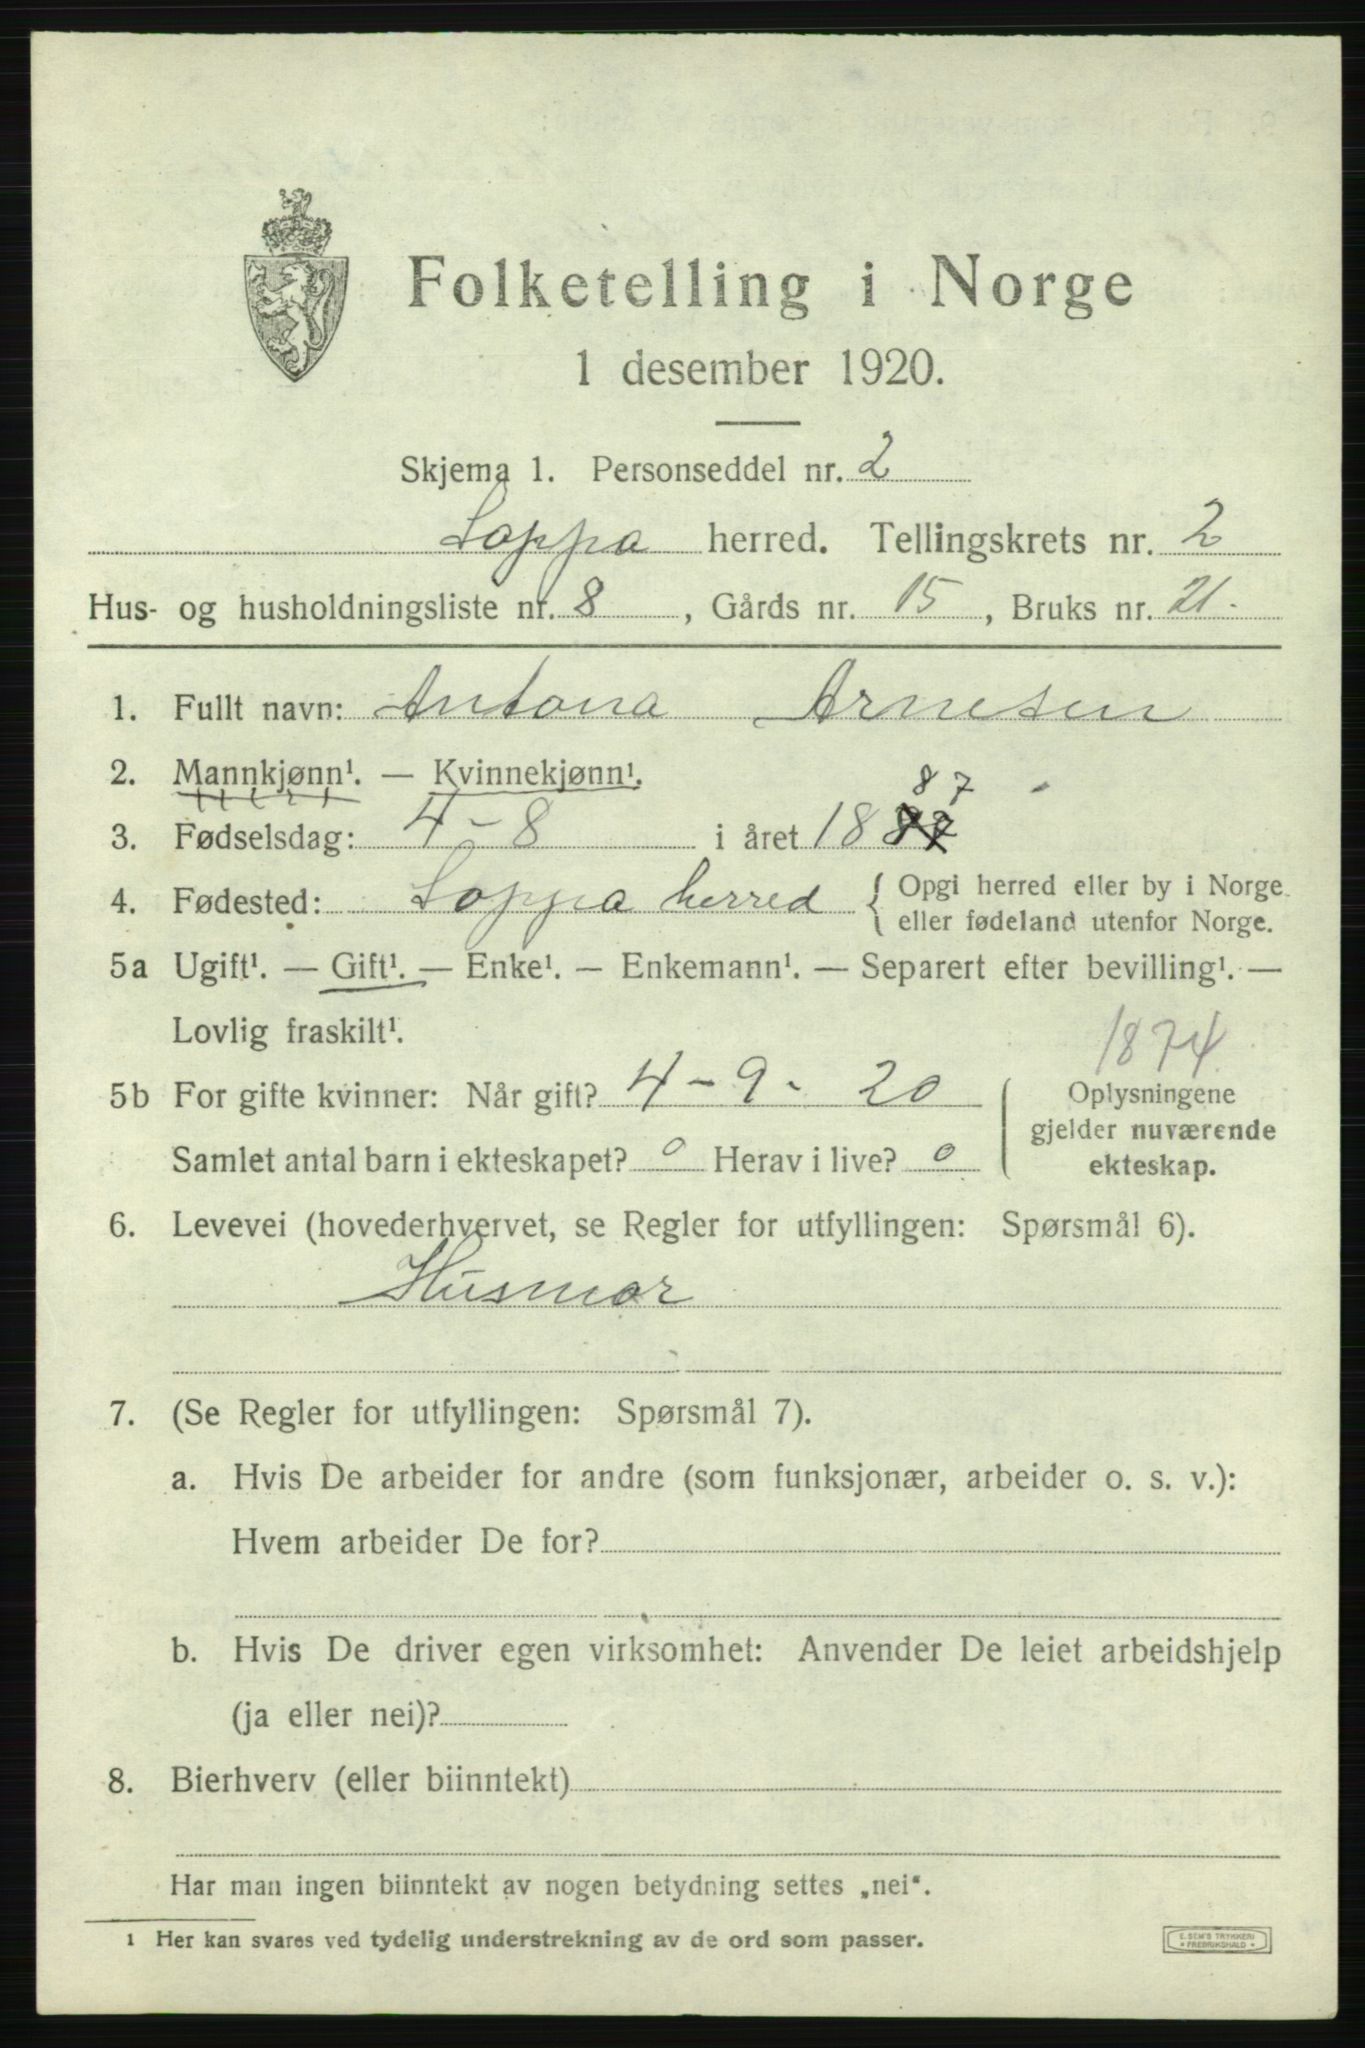 Folketelling i Norge
1 desember 1920.
Skjema 1. Personseddel nr. 2
Loppa herred. Tellingskrets nr. 2
Hus- og husholdningsliste nr. 8, Gårds nr. 15, Bruks nr. 21.
1. Fullt navn: Antona Arnesen
2. Mannkjønn¹. — Kvinnekjønn¹.
87
3. Fødselsdag: 4-8 i året 18
4. Fødested: Loppa herred { Opgi herred eller by i Norge
eller fødeland utenfor Norge.
5a Ugift¹. — Gift¹. — Enke¹. — Enkemann¹. — Separert efter bevilling¹. —
Lovlig fraskilt¹.
1874
5b For gifte kvinner: Når gift? 4-9-20 Oplysningene
gjelder nuværende
Samlet antal barn i ekteskapet? 0 Herav i live? 0 ekteskap.
6. Levevei (hovederhvervet, se Regler for utfyllingen: Spørsmål 6).
Husmor
7. (Se Regler for utfyllingen: Spørsmål 7).
a. Hvis De arbeider for andre (som funksjonær, arbeider o. s. v.):
Hvem arbeider De for?
b. Hvis De driver egen virksomhet: Anvender De leiet arbeidshjelp
(ja eller nei)?
8. Bierhverv (eller biinntekt)
Har man ingen biinntekt av nogen betydning settes „nei“.
¹ Her kan svares ved tydelig understrekning av de ord som passer.
E. SEM'S TRYKKERI
• FREDRIKSHALD •